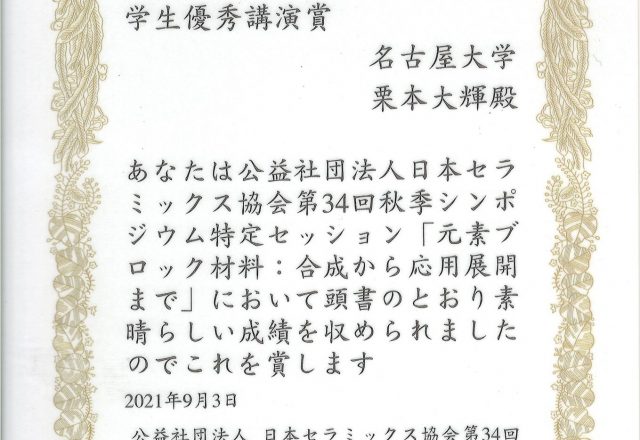 学生優秀講演賞
名古屋大学
栗本大輝殿
あなたは公益社団法人日本セラ
ミックス協会第34回秋季シンポ
ジウム特定セッション「元素ブ
ロック材料：合成から応用展開
まで」において頭書のとおり素
晴らしい成績を収められました
のでこれを賞します
2021年9月3日
公益社団法人 日本セラミックス協会第34回